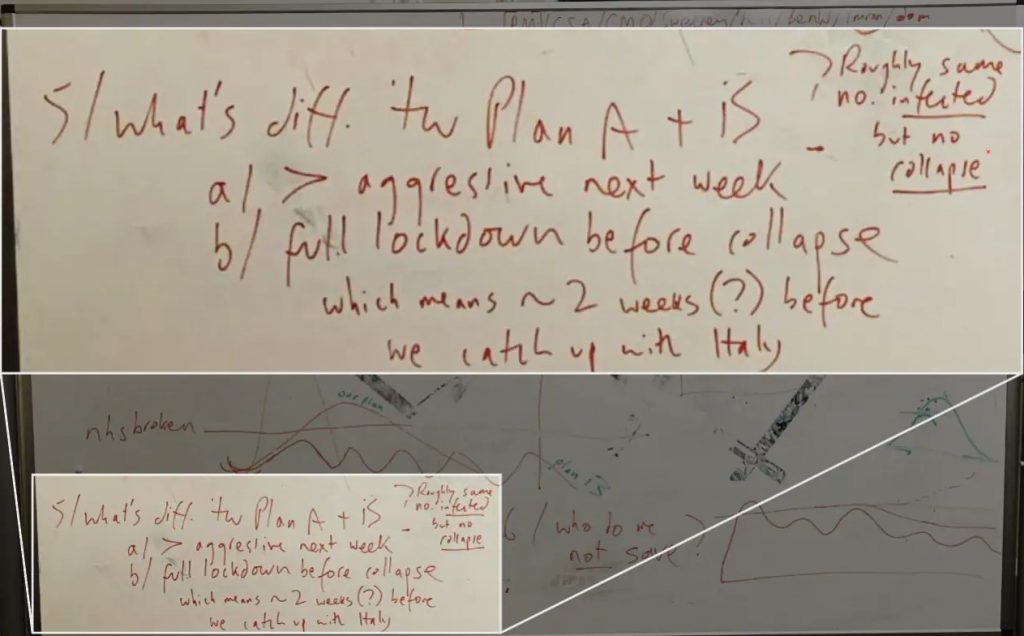 1 [PM/CSA/CMO/
5/ what's diff. tw Plan A + iS
a/ > aggressive next week
b/ full lockdown before collapse
which means ~ 2 weeks (?) before
we catch up with Italy
Roughly same
no. infected
but no
collapse
our plan
nhs broken
plan iS
5/ what's diff. tw Plan A + iS
a/ > aggressive next week
b/ full lockdown before collapse
which means ~ 2 weeks (?) before
we catch up with Italy
Roughly same
no. infected
but no
collapse
6/ who do we
not save?